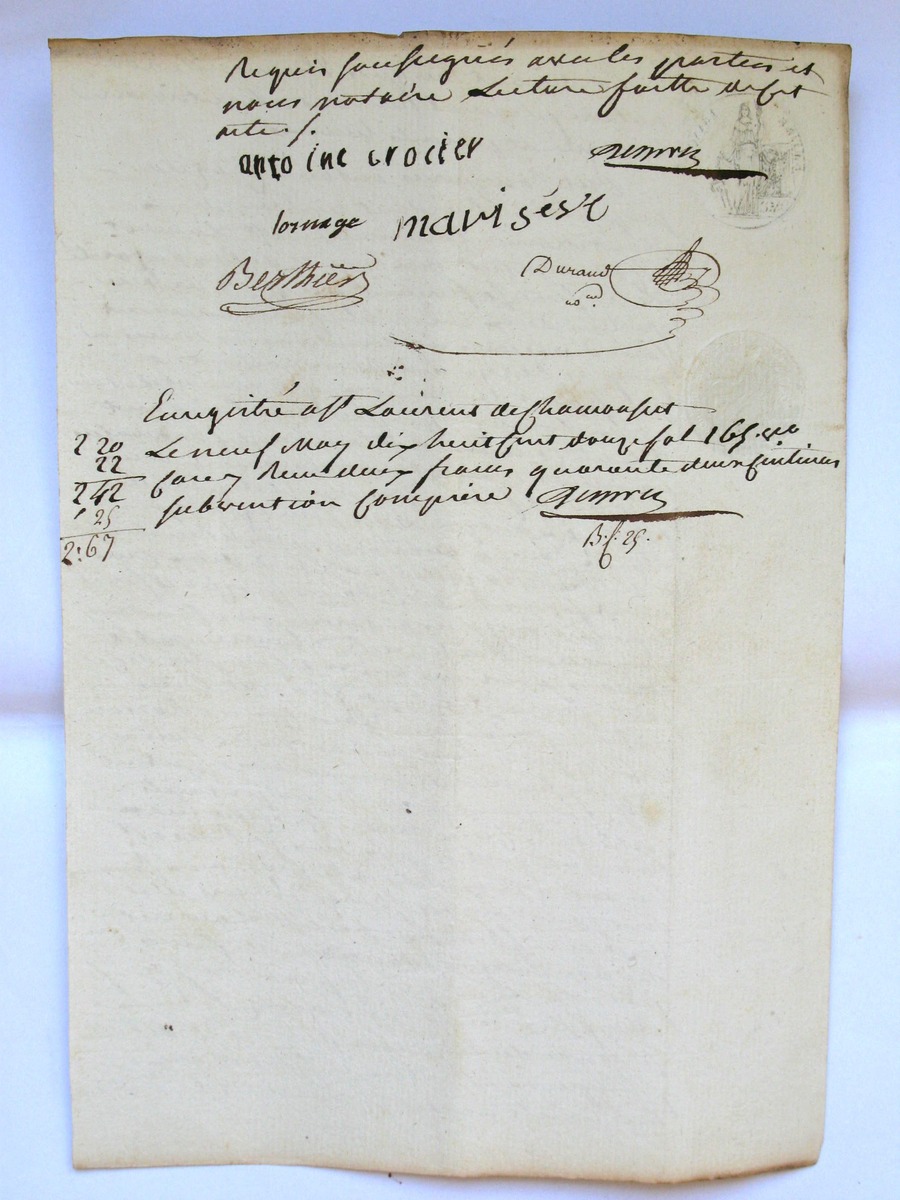 Requis soussignés avec les parties et
nous notaire Lecture faitte de cet
acte ./.
antoine crocier
lornage marigése
Berthier Durand
no.re
Enregistré a St Laurens de Chamousset
Le neuf May dix huit cent douze fol 165. r.o
Case recu deux francs quarante deux Centimes
subvention Comprise
2 20
22
2 42
25
2:67
B. f: 25.